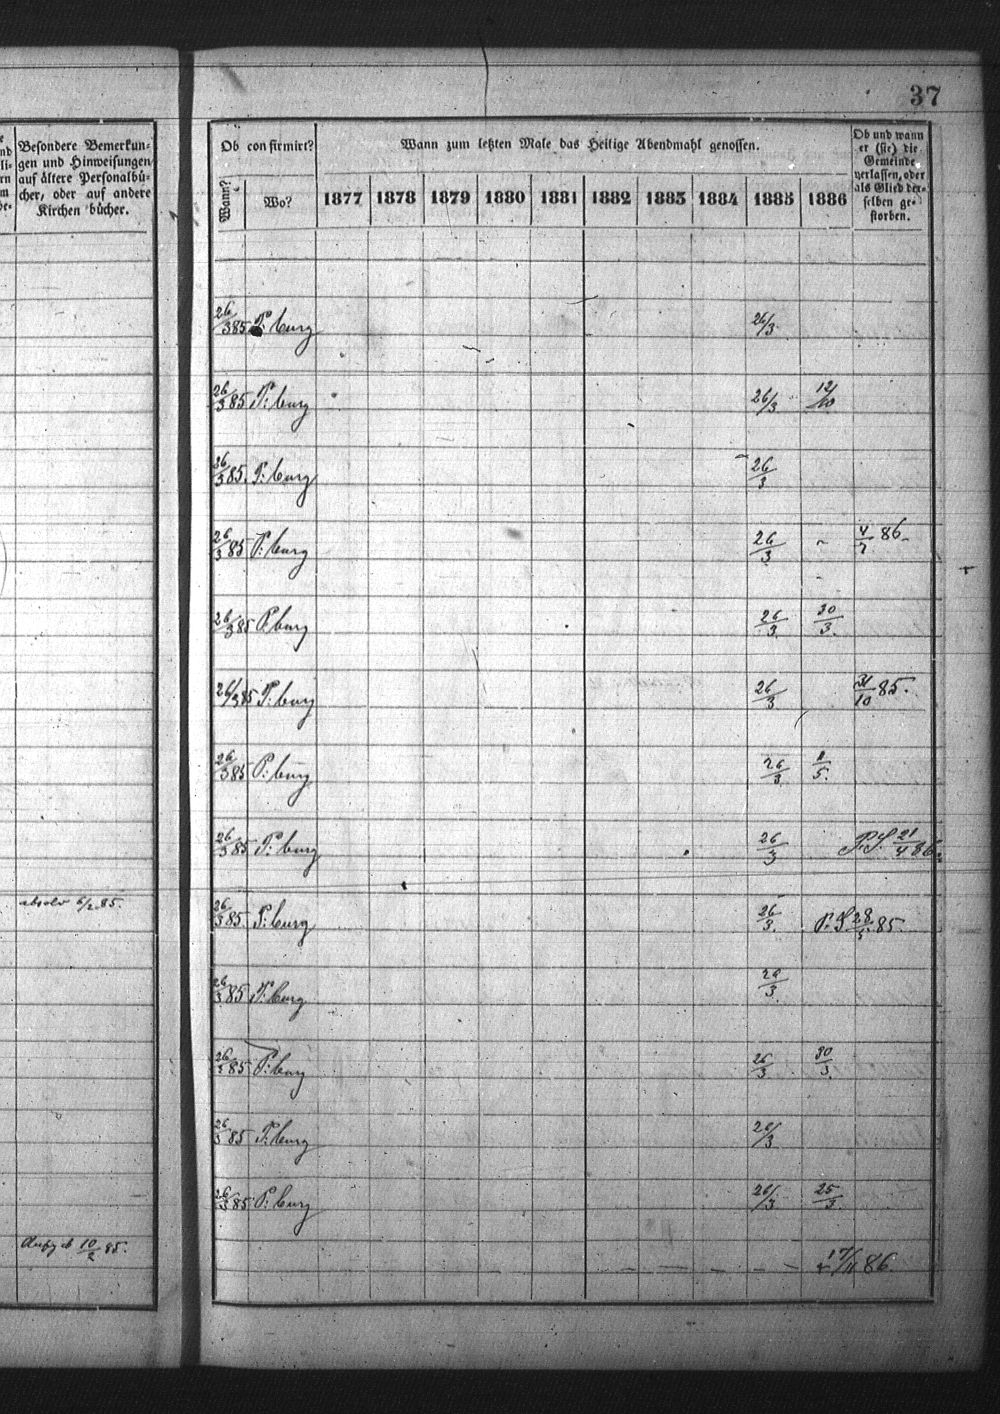 37
Besondere Bemerkun-
gen und Hinweisungen
auf ältere Personalbü-
cher, oder auf andere
Kirchen bücher.
Ob confirmirt?
Wann?
Wo?
Wann zum letzten Male das Heilige Abendmahl genossen.
1877 1878 1879 1880 1881 1882 1883 1884 1885 1886
Ob und wann
er (sie) die
Gemeinde
verlassen, oder
als Glied der-
selben ge-
storben.
26/3 85 P: burg 26/3
26/3 85 P: burg 26/3 12/10
26/3 85. P: burg 26/3
26/3 85 P: burg 26/3 4/7 86
26/3 85 P: burg 26/3 30/3.
26/3 85 P: burg 26/3 31/10 85.
26/3 85 P: burg 26/3 1/5.
26/3 85 P: burg 26/3 P. S. 21/4 86.
absolv 6/2 85.
26/3 85. P: burg 26/3. P. S. 28/5. 85.
26/3 85 P: burg 26/3.
26/3 85 P: burg 26/3 30/3.
26/3 85 P: burg 26/3
26/3 85 P: burg 26/3 25/3.
10/2 85.
17/11 86.